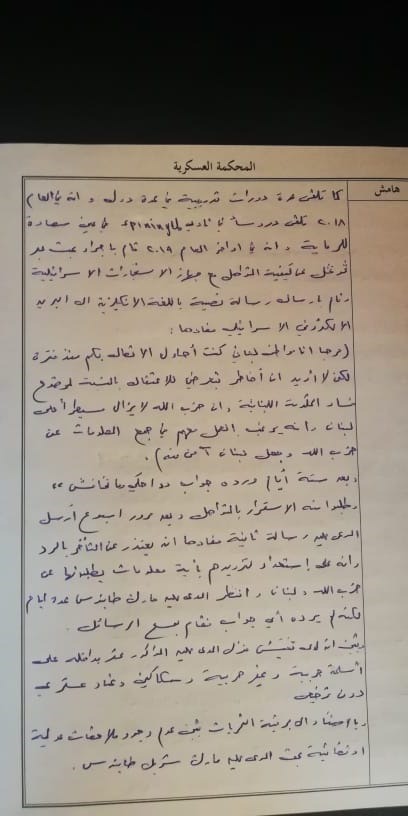 المحكمة العسكرية
هامش
كما تلقى عدة دورات تدريبية في عدة دول وانه في العام
٢٠١٨ تلقى دروساً في نادي spiningll في عين سعادة
للرماية وانه في اواخر العام ٢٠١٩ قام باجراء بحث عبر
غوغل عن كيفية التواصل مع جهاز الاستخبارات الاسرائيلية
وقام بارسال رسالة نصية باللغة الانكليزية الى البريد
الالكتروني الاسرائيلي مفادها:
(مرحبا انا مواطن لبناني كنت أحاول الاتصال بكم منذ فترة
لكن لا اريد ان أخاطر بتعرضي للاعتقال بالنسبة لموضوع
فساد الحكومة اللبنانية وان حزب الله لا يزال مسيطر على
لبنان وانه يرغب العمل معهم في جمع المعلومات عن
حزب الله وجعل لبنان آمن منه).
وبعد ستة أيام ورده جواب
وطلبوا منه الاستمرار بالتواصل وبعد مرور اسبوع أرسل
المدعى عليه رسالة ثانية مفادها انه يعتذر عن التأخير بالرد
وانه على إستعداد لتزويدهم بأية معلومات يطلبونها عن
حزب الله ولبنان وانتظر المدعى عليه مارك طابنرس عدة ايام
لكنه لم يرده أي جواب فقام بمسح الرسائل.
وتبين انه لدى تفتيش منزل المدعى عليه المذكور عثر بداخله على
أسلحة حربية وغير حربية وسكاكين وعتاد عسكري
دون ترخيص
وبالاستناد الى برقية التحريات تبين عدم وجود ملاحقات عدلية
او قضائية بحق المدعى عليه مارك شربل طابنرس.